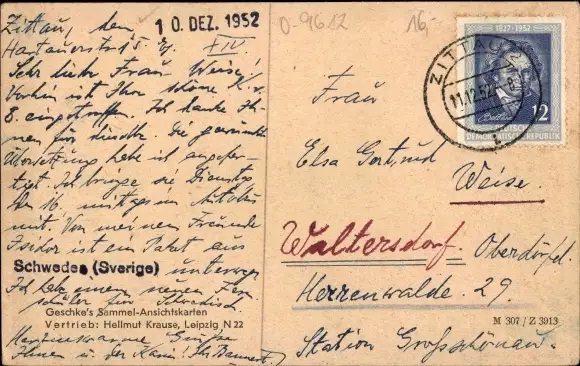 Zittau, den 10. DEZ. 1952
Hartauerstr. 15.
XIV
Sehr liebe Frau Weise!
Vorhin ist Ihr schöne K. v.
8. eingetroffen. Ich danke Ih-
nen für dieselbe. Die gewünschte
Übersetzung habe ich angefer-
tigt. Ich bringe sie Dienstag
den 16. mittags im Autobus
mit. Von meinem Freunde
Isidor ist ein Paket aus
Schweden (Sverige) unterwegs
Ich habe einen neuen
schüler für Schwedisch.
Geschke's Sammel-Ansichtskarten
Vertrieb: Hellmut Krause, Leipzig N 22
Grüße
Ihnen u. der Karin! Ihr
D-9612
16,-
1827-1952
12
DEUTSCHE
DEMOKRATISCHE REPUBLIK
ZITTAU 2
11.12.52
Frau
Elsa Gertrud
Weise.
Waltersdorf. Oberdorf
Herrenwalde. 29.
M 307 / Z 3913
Station Großschönau.